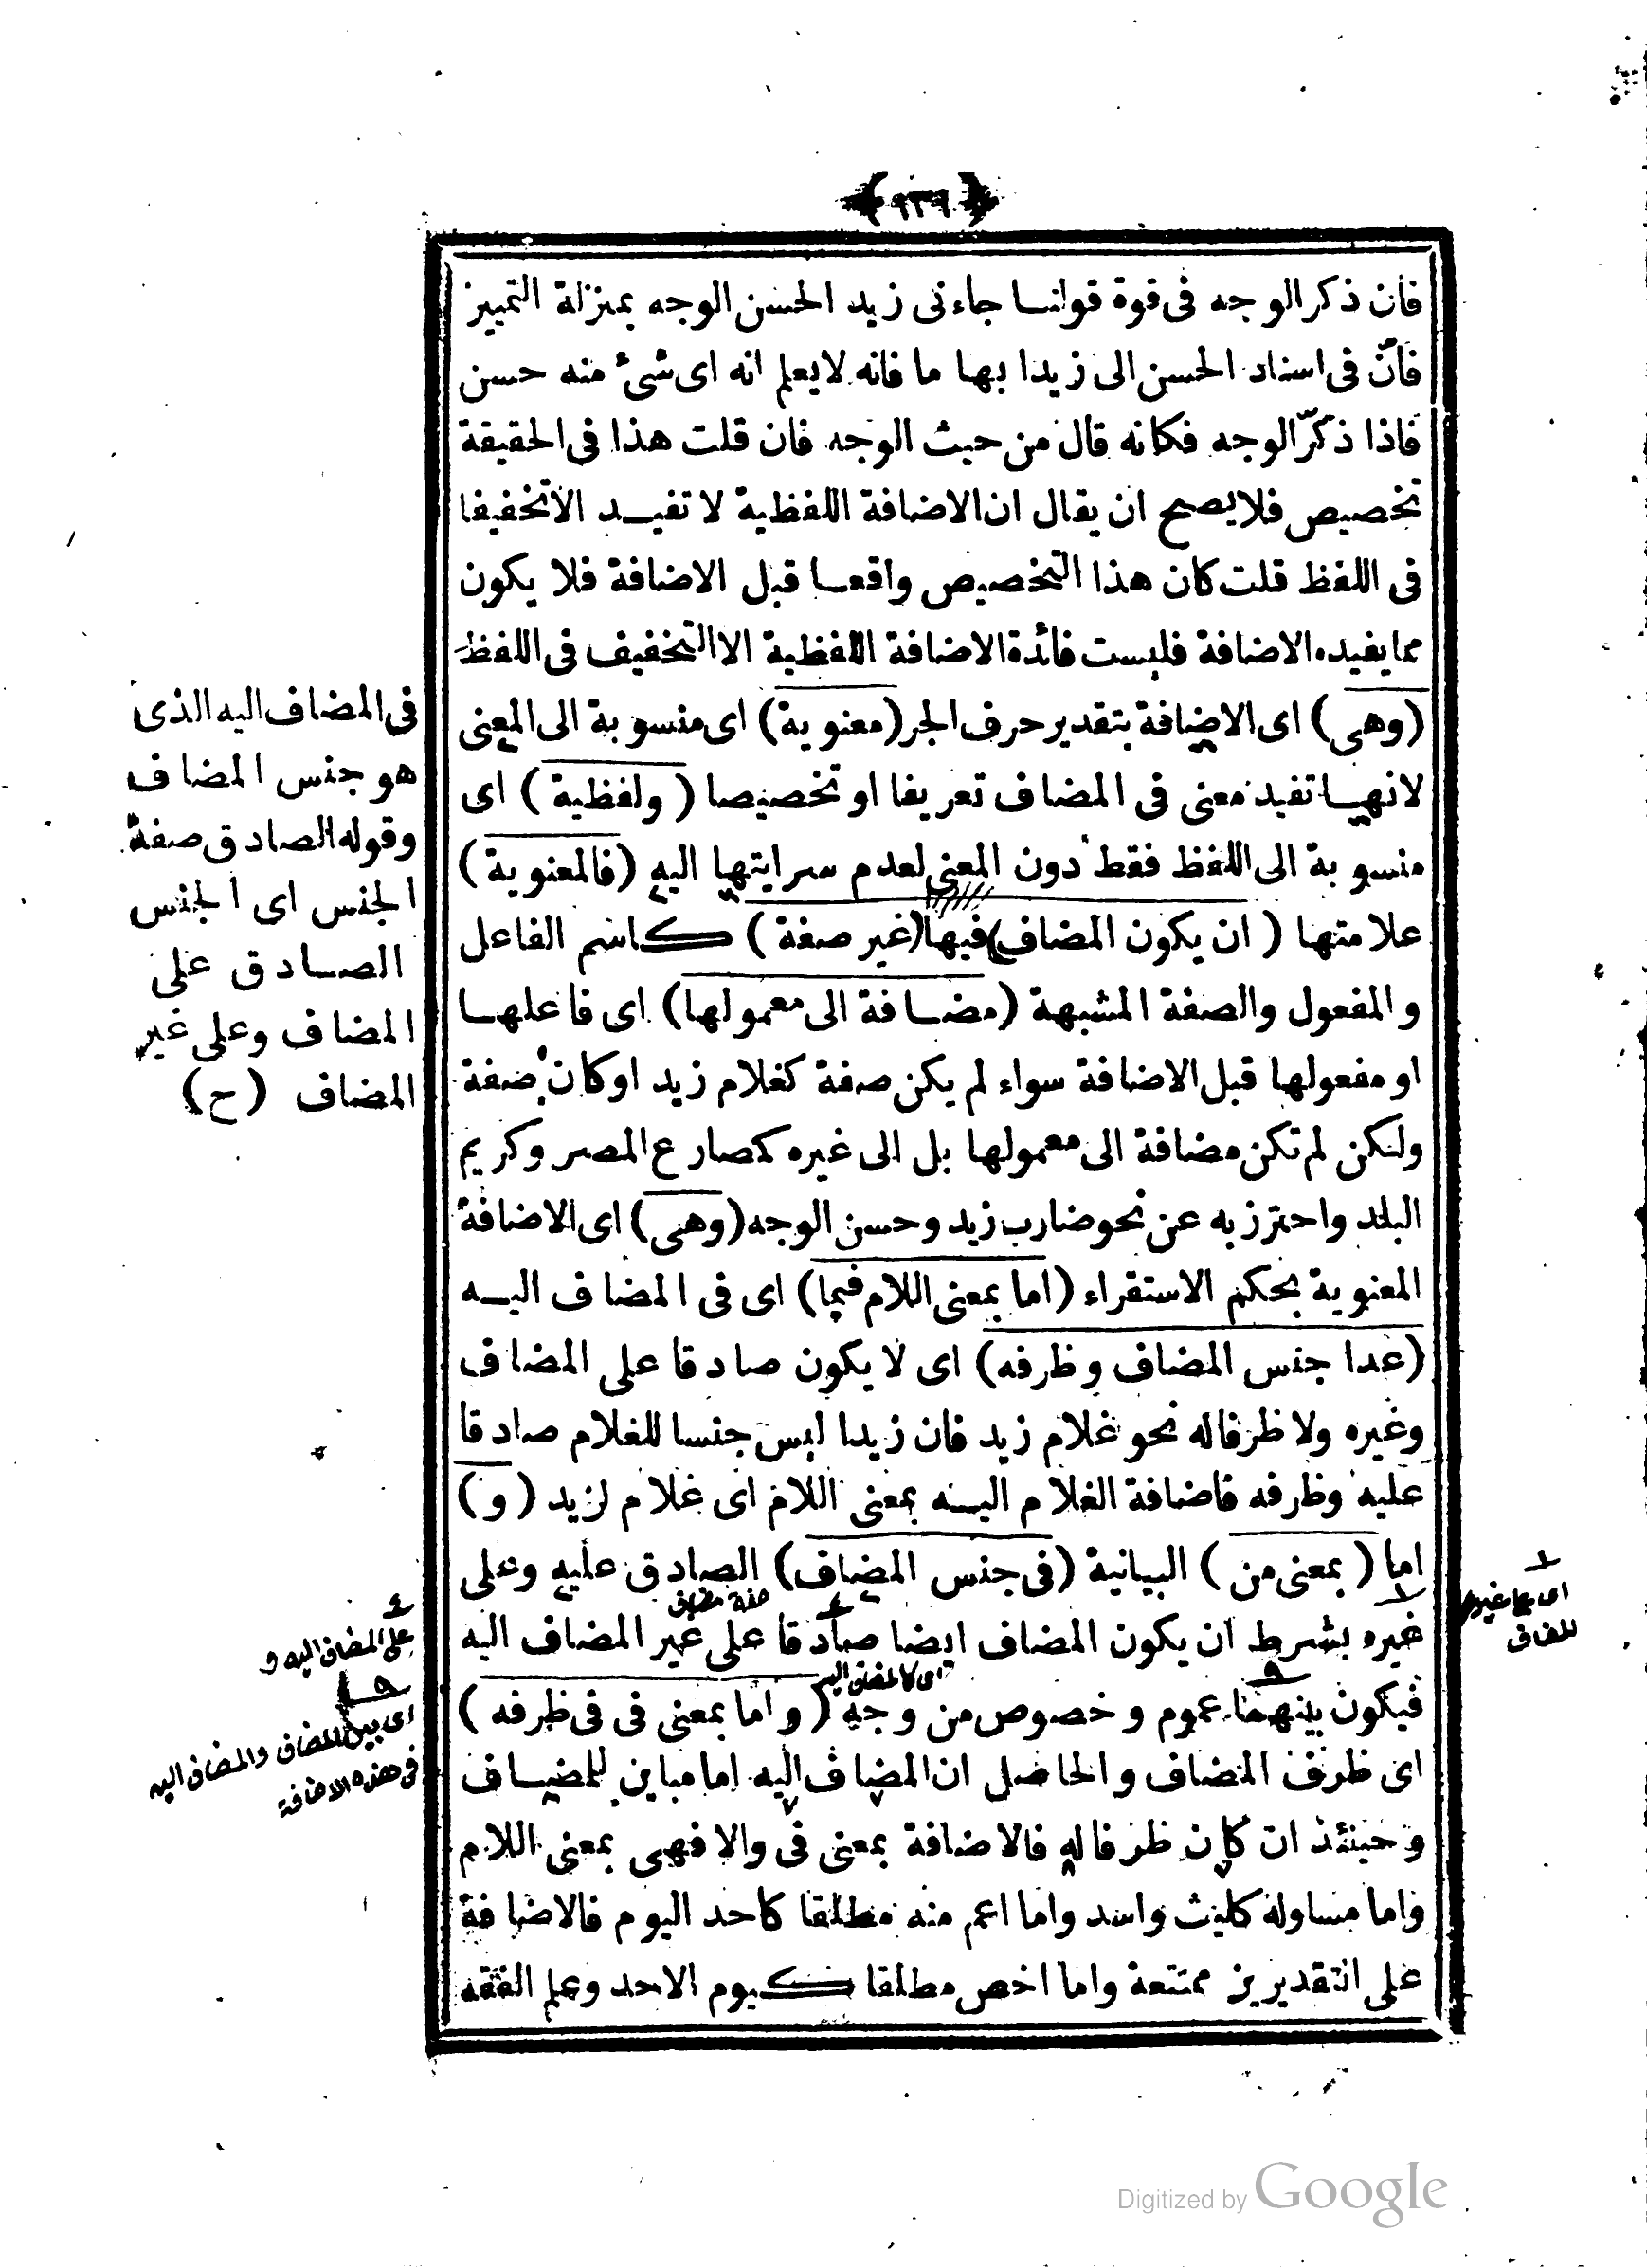 ﴿١٣٦﴾
فان ذكر الوجه فى قوة قولنا جاءنى زيد الحسن الوجه بمنزلة التمييز
فانّ فى اسناد الحسن الى زيد ابهاما فانه لايعلم انه اى شئ منه حسن
فاذا ذكرّ الوجه فكانه قال من حيث الوجه فان قلت هذا فى الحقيقة
تخصيص فلايصح ان يقال ان الاضافة اللفظية لا تفيد الا تخفيفا
فى اللفظ قلت كان هذا التخصيص واقعا قبل الاضافة فلا يكون
مما يفيده الاضافة فليست فائدة الاضافة اللفظية الا التخفيف فى اللفظ
(وهى) اى الاضافة بتقدير حرف الجر (معنوية) اى منسوبة الى المعنى
لانهها تفيد معنى فى المضاف تعريفا او تخصيصا (ولفظية) اى
منسوبة الى اللفظ فقط دون المعنى لعدم سرايتها اليه (فالمعنوية)
علامتها (ان يكون المضاف) فيها (غير صفة) كاسم الفاعل
والمفعول والصفة المشبهة (مضافة الى معمولها) اى فاعلها
او مفعولها قبل الاضافة سواء لم يكن صفة كغلام زيد او كان صفة
ولكن لم تكن مضافة الى معمولها بل الى غيره كمصارع المصر وكريم
البلد واحترز به عن نحو ضارب زيد وحسن الوجه (وهى) اى الاضافة
المعنوية بحكم الاستقراء (اما بمعنى اللام فيما) اى فى المضاف اليه
(عدا جنس المضاف وظرفه) اى لا يكون صادقا على المضاف
وغيره ولا ظرفا له نحو غلام زيد فان زيدا ليس جنسا للغلام صادقا
عليه وظرفه فاضافة الغلام اليه بمعنى اللام اى غلام لزيد (و)
اما (بمعنى من) البيانية (فى جنس المضاف) الصادق عليه وعلى
غيره بشرط ان يكون المضاف ايضا صادقا على غير المضاف اليه
فيكون بينهما عموم وخصوص من وجه (واما بمعنى فى فى ظرفه)
اى ظرف المضاف والحاصل ان المضاف اليه اما مباين للمضاف
وحينئذ ان كان ظرفا له فالاضافة بمعنى فى والا فهى بمعنى اللام
واما مساوله كليث واسد واما اعم منه مطلقا كاحد اليوم فالاضافة
على التقديرين ممتنعة واما اخص مطلقا كيوم الاحد وعلم الفقه
فى المضاف اليه الذى
هو جنس المضاف
وقوله الصادق صفة
الجنس اى الجنس
الصادق على
المضاف وعلى غير
المضاف (ح)
على المضاف اليه و
اى بين المضاف والمضاف اليه
فى هذه الاضافة
للمضاف
Digitized by Google